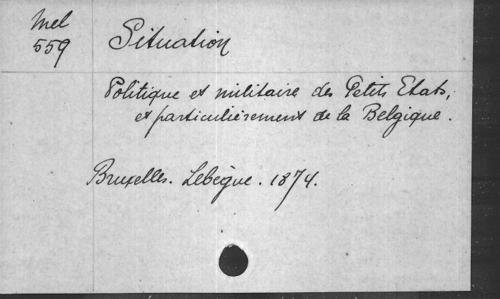 Mel
559
Situation
Politique et militaire des Petits Etats,
et particulièrement de la Belgique.
Bruxelles. Lebègue. 1874.